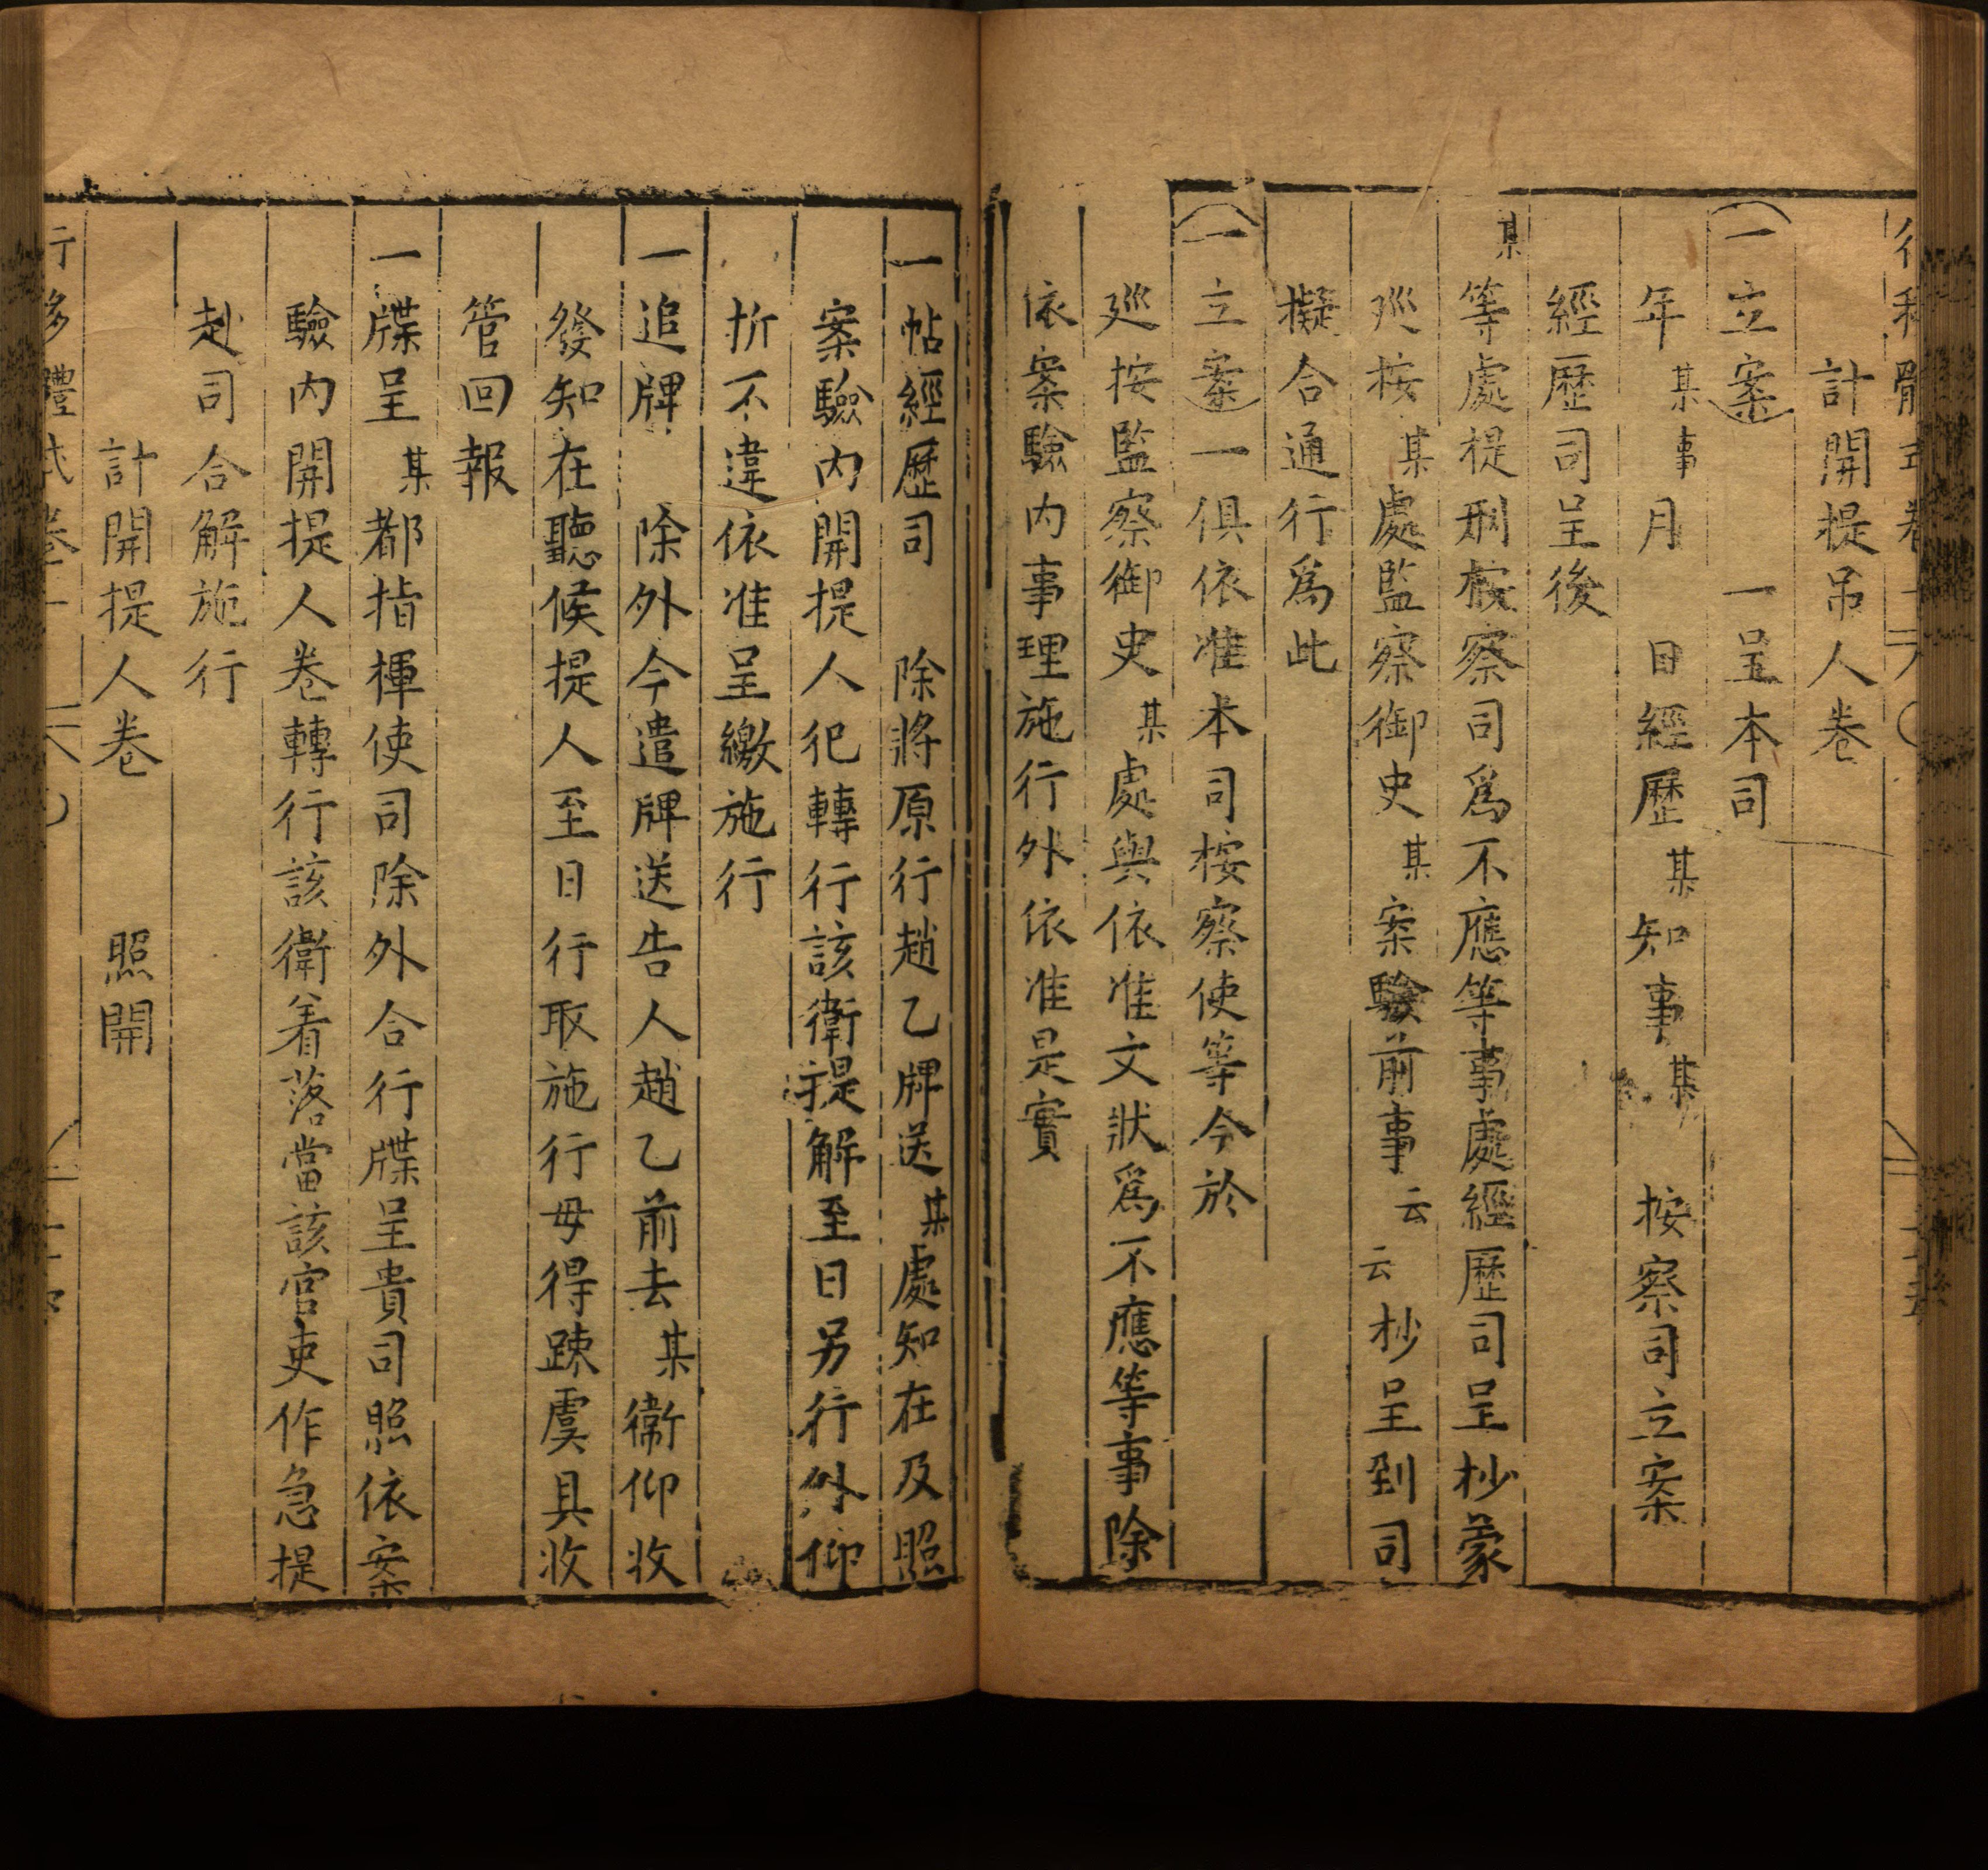 計開提吊人卷
一立案　一呈本司
年某事月　日經歷某知事某　按察司立案
經歷司呈後
某等處提刑按察司爲不應等事處經歷司呈抄蒙
巡按某處監察御史某案驗前事云云抄呈到司
擬合通行爲此
一立案一俱依准本司按察使等今於
廵按監察御史某處與依准文狀爲不應等事除
依案驗内事理施行外依准是實
一帖經歷司　除將原行趙乙牌送某處知在及照
案驗内開提人犯轉行該衛提解至日另行外仰
折不違依准呈繳施行
一追牌　除外今遣牌送告人趙乙前去某衛仰收
發知在聽候提人至日行取施行毋得踈虞具收
管回報
一牒呈某都指揮使司除外合行牒呈貴司照依案
驗内開提人卷轉行該衛着落當該官吏作急提
赴司合解施行
計開提人卷　照開